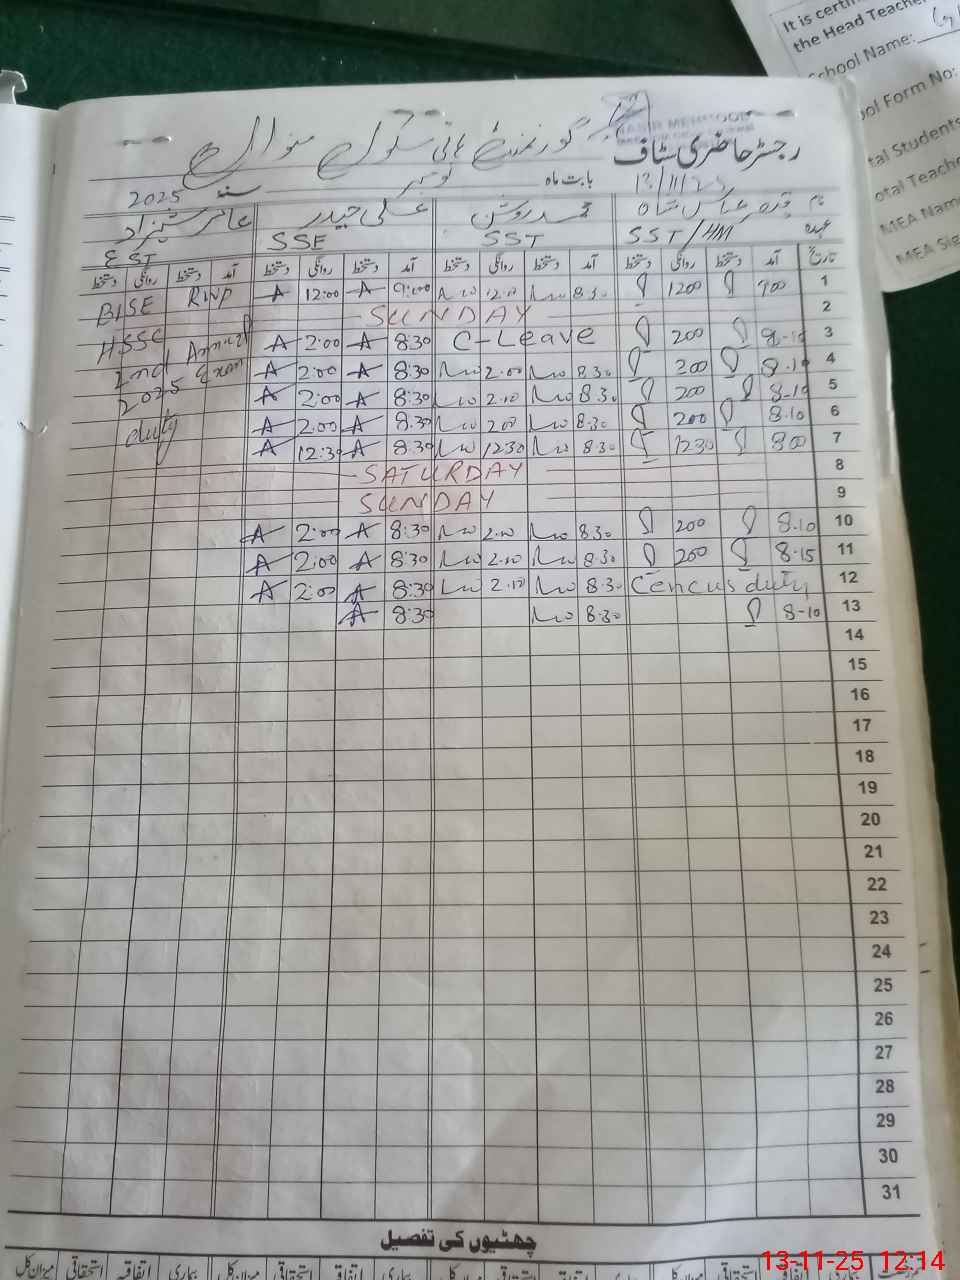 It is certif
the Head Teacher
School Name:
ool Form No:
tal Students
otal Teache
MEA Name
MEA Sig
گورنمنٹ ہائی سکول
رجسٹر حاضری سٹاف
13/11/25
بابت ماہ نومبر سنہ 2025
نام محمد روشن علی حیدر عامر شہزاد
عہدہ SST/HM SST SSE EST
تاریخ آمد دستخط روانگی دستخط آمد دستخط روانگی دستخط آمد دستخط روانگی دستخط آمد دستخط روانگی دستخط
1 900 1200 8.30 12.00 9:00 A 12:00 A BISE RWP
2 SUNDAY HSSC
3 8-10 200 C-Leave 8:30 A 2:00 A 2nd Annual
4 8.10 200 8.30 2.00 8:30 A 2:00 A 2025 Exam
5 8-10 200 8.30 2.10 8:30 A 2:00 A duty
6 8.10 200 8.30 200 8:30 A 2:00 A
7 800 1230 8.30 1230 8:30 A 12:30 A
8 SATURDAY
9 SUNDAY
10 8.10 200 8.30 2.10 8:30 A 2:00 A
11 8.15 200 8.30 2.10 8:30 A 2:00 A
12 Cencus duty 8.30 2.10 8:30 A 2:00 A
13 8-10 8.30 8:30 A
14
15
16
17
18
19
20
21
22
23
24
25
26
27
28
29
30
31
چھٹیوں کی تفصیل
بیماری اتفاقیہ استحقاقی میزان کل
13-11-25 12:14